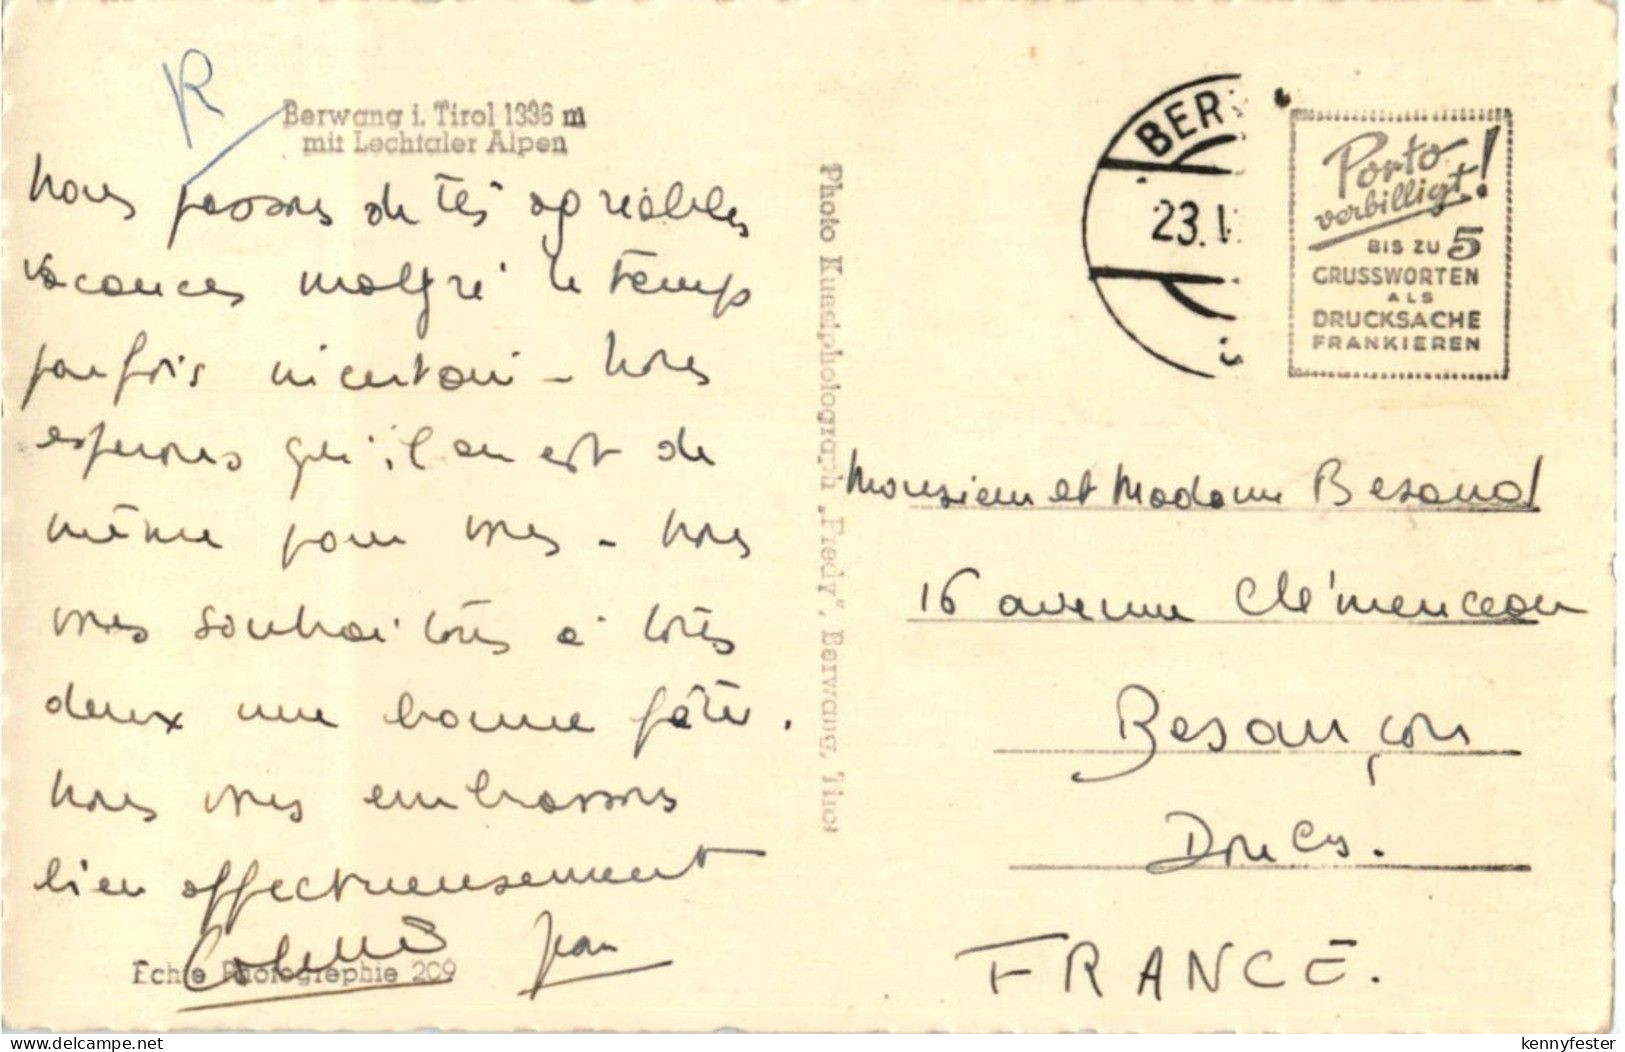 R
Berwang i. Tirol 1336 m
mit Lechtaler Alpen
Nous passons de très agréables
vacances malgré le temps
parfois incertain - Nous
esperons qu'il en est de
même pour vous - Nous
vous souhaitons à tous
deux une bonne fête.
Nous vous embrassons
bien affectueusement
Jean
Echte Photographie 209
Photo Kunstphotograph "Fredy", Berwang, Tirol
BER
23.
Porto
verbilligt!
BIS ZU 5
GRUSSWORTEN
ALS
DRUCKSACHE
FRANKIEREN
Monsieur et Madame Besand
16 avenue Clémenceau
Besançon
Doubs.
FRANCE.
delcampe.net
kennyfester